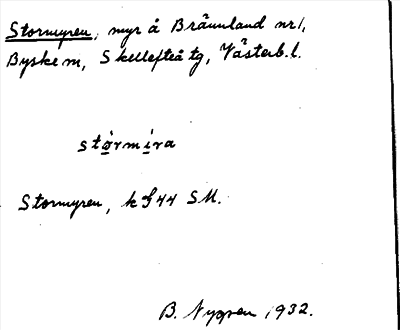 Stormyren, myr å Brännland nr 1,
Byske m, Skellefteå tg, Västerb. l.
størmira
Stormyren, k S44 SM.
B. Nygren 1932.